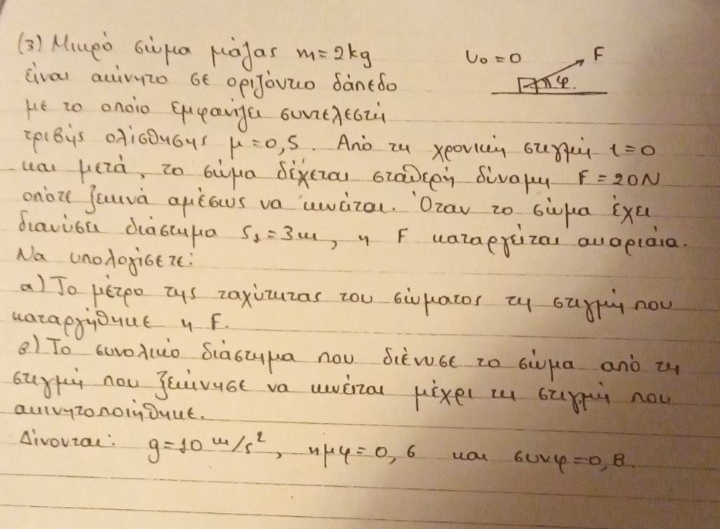 (3) Μικρό σώμα μάζας m=2kg
υ₀=0
F
φ
είναι ακίνητο σε οριζόντιο δάπεδο
με το οποίο εμφανίζει συντελεστή
τριβής ολίσθησης μ=0,5. Από τη χρονική στιγμή t=0
και μετά, το σώμα δέχεται σταθερή δύναμη F=20N
οπότε ξεκινά αμέσως να κινείται. Όταν το σώμα έχει
διανύσει διάστημα S₁=3m, η F καταργείται ακαριαία.
Να υπολογίσετε:
α) Το μέτρο της ταχύτητας του σώματος τη στιγμή που
καταργήθηκε η F.
β) Το συνολικό διάστημα που διένυσε το σώμα από τη
στιγμή που ξεκίνησε να κινείται μέχρι τη στιγμή που
ακινητοποιήθηκε.
Δίνονται: g=10 m/s², ημφ=0,6 και συνφ=0,8.